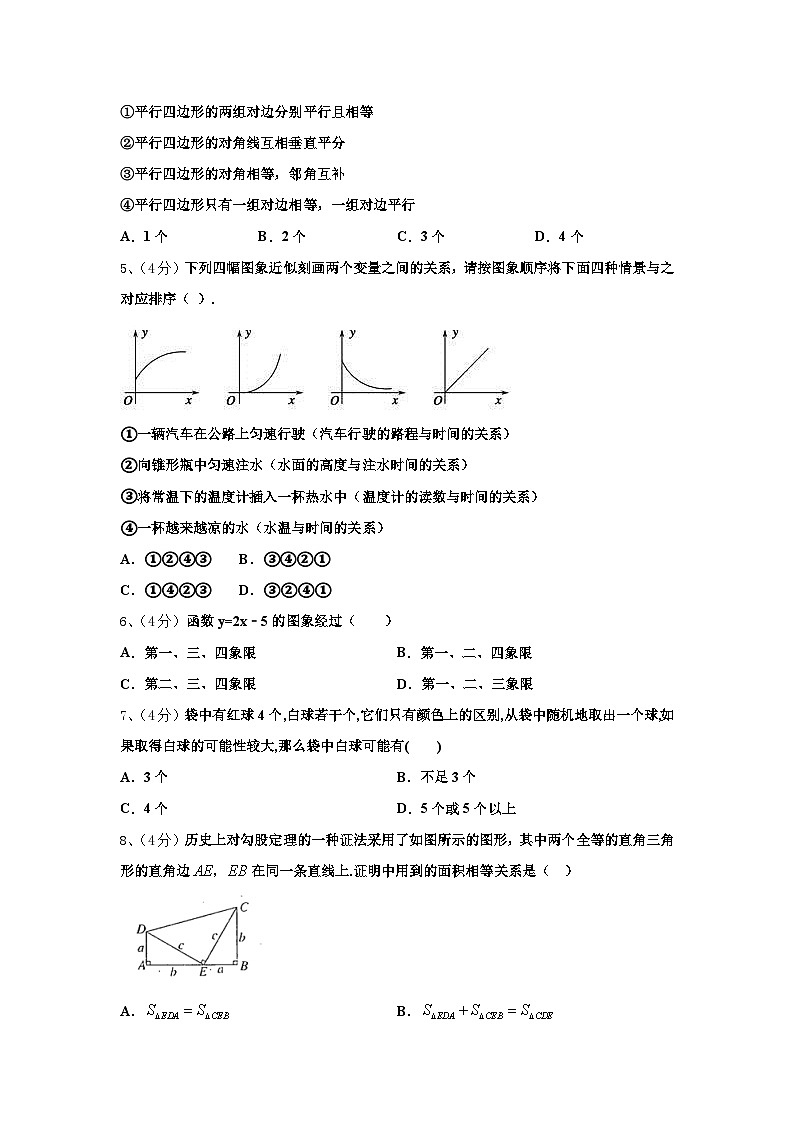 ①平行四边形的两组对边分别平行且相等
②平行四边形的对角线互相垂直平分
③平行四边形的对角相等，邻角互补
④平行四边形只有一组对边相等，一组对边平行
A．1 个 B．2 个 C．3 个 D．4 个
5、（4 分）下列四幅图象近似刻画两个变量之间的关系，请按图象顺序将下面四种情景与之
对应排序（ ）.
y y y y
O x O x O x O x
①一辆汽车在公路上匀速行驶（汽车行驶的路程与时间的关系）
②向锥形瓶中匀速注水（水面的高度与注水时间的关系）
③将常温下的温度计插入一杯热水中（温度计的读数与时间的关系）
④一杯越来越凉的水（水温与时间的关系）
A．①②④③ B．③④②①
C．①④②③ D．③②④①
6、（4 分）函数 y=2x﹣5 的图象经过（ ）
A．第一、三、四象限 B．第一、二、四象限
C．第二、三、四象限 D．第一、二、三象限
7、（4 分）袋中有红球 4 个,白球若干个,它们只有颜色上的区别,从袋中随机地取出一个球,如
果取得白球的可能性较大,那么袋中白球可能有( )
A．3 个 B．不足 3 个
C．4 个 D．5 个或 5 个以上
8、（4 分）历史上对勾股定理的一种证法采用了如图所示的图形，其中两个全等的直角三角
形的直角边 AE，EB 在同一条直线上.证明中用到的面积相等关系是（ ）
C
D
a c c b
A b E a B
A．S△EDA = S△CEB B．S△EDA + S△CEB = S△CDE